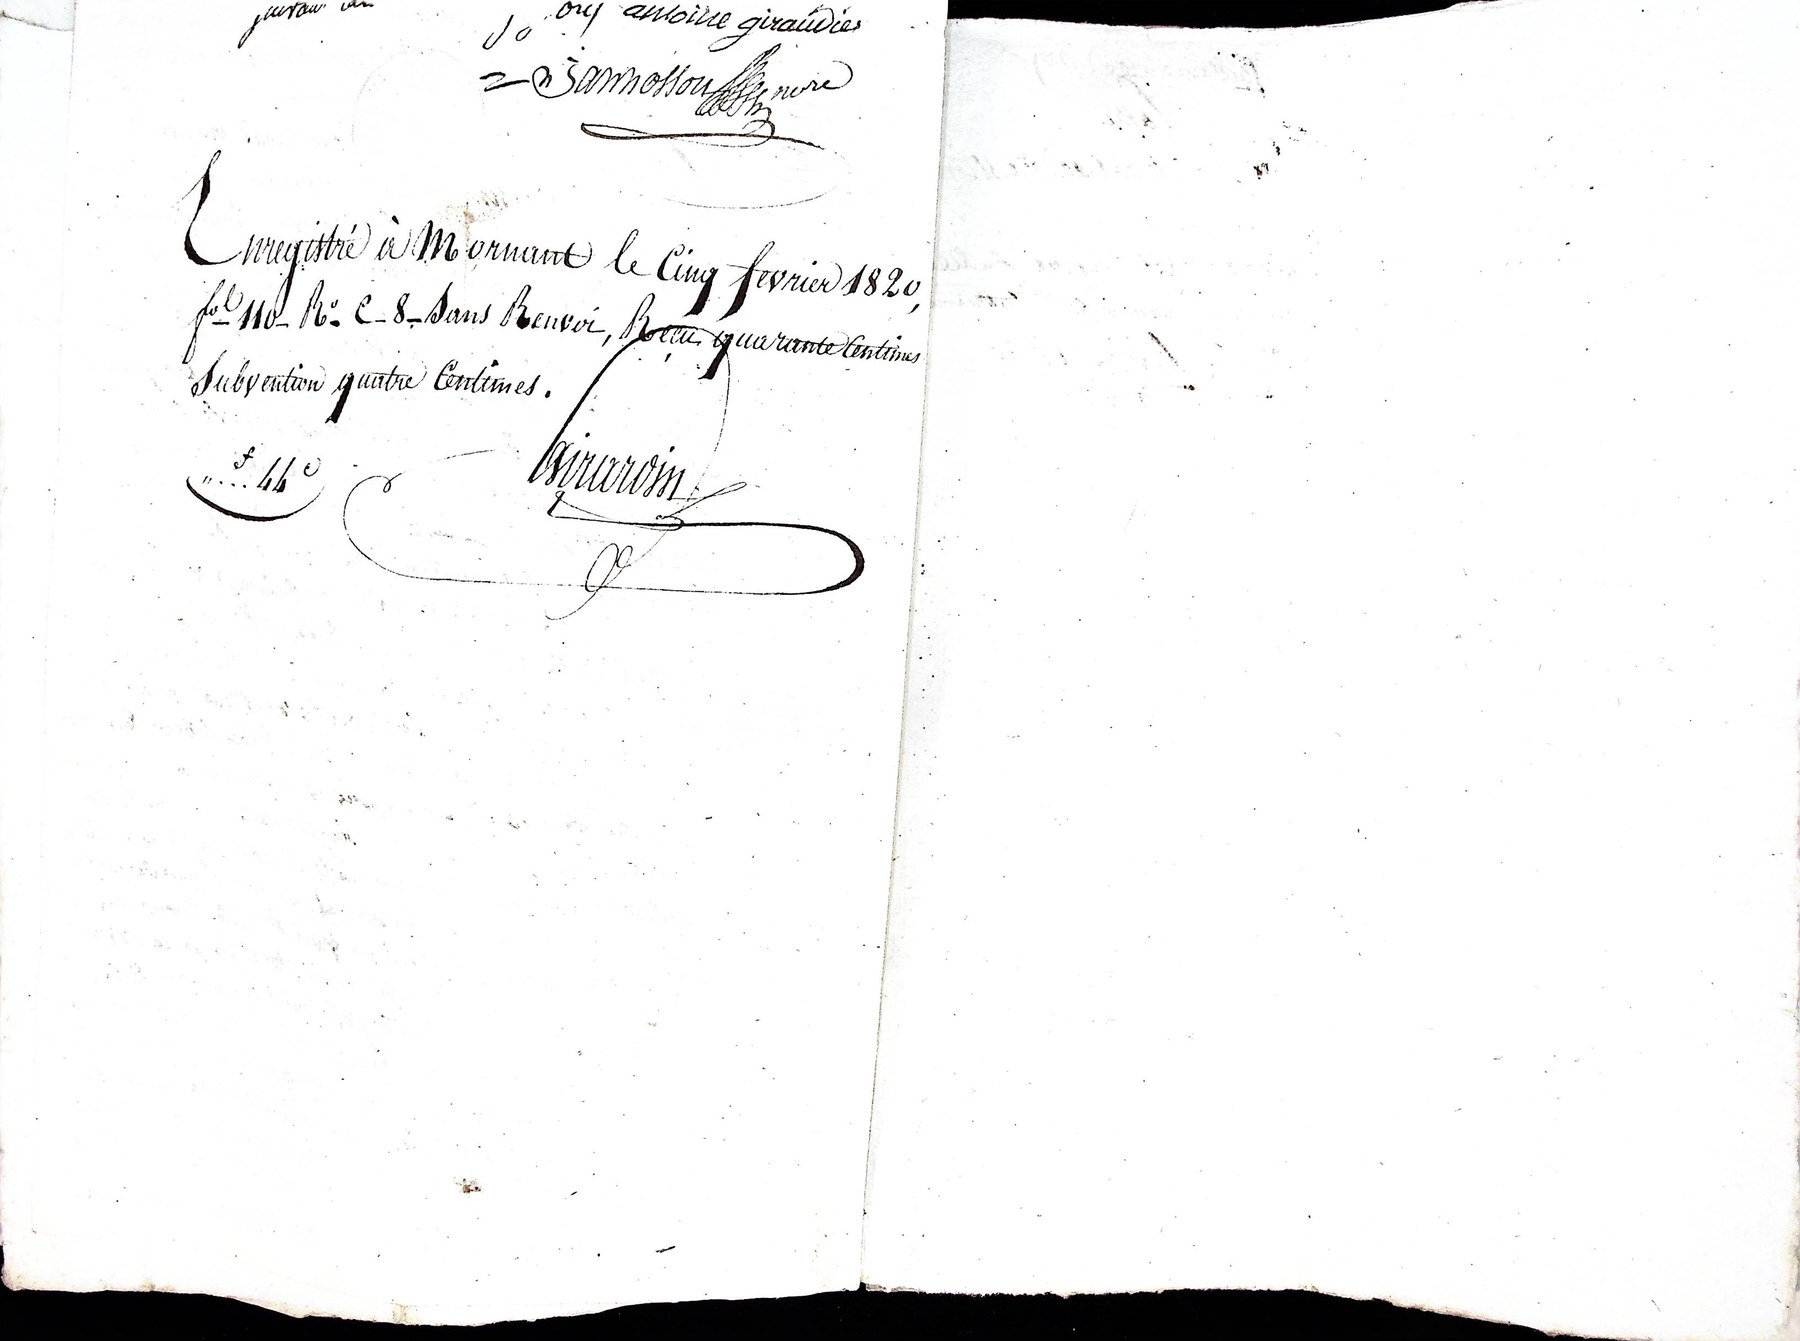 antoine giraudier
Enregistré à Mornant le Cinq fevrier 1820,
fol. 110 Ro. C. 8. Sans Renvoi, Reçu quarante Centimes
Subvention quatre Centimes.
f
„ ... 44 c
Girardin